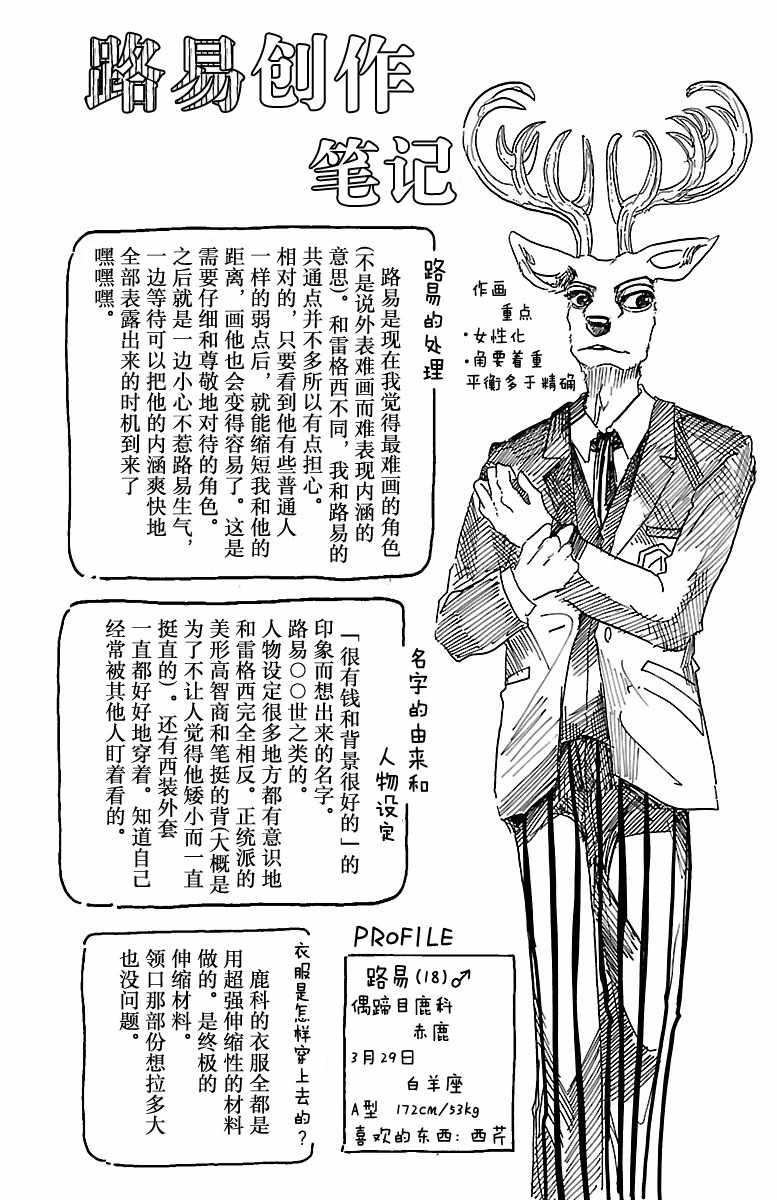 路易创作
笔记
作画
重点
·女性化
·角要着重
平衡多于精确
路易的处理
路易是现在我觉得最难画的角色
(不是说外表难画而难表现内涵的
意思)。和雷格西不同，我和路易的
共通点并不多所以有点担心。
相对的，只要看到他有些普通人
一样的弱点后，就能缩短我和他的
距离，画他也会变得容易了。这是
需要仔细和尊敬地对待的角色。
之后就是一边小心不惹路易生气，
一边等待可以把他的内涵爽快地
全部表露出来的时机到来了
嘿嘿嘿。
名字的由来和
人物设定
「很有钱和背景很好的」的
印象而想出来的名字。
路易○○世之类的。
人物设定很多地方都有意识地
和雷格西完全相反。正统派的
美形高智商和笔挺的背(大概是
为了不让人觉得他矮小而一直
挺直的)。还有西装外套
一直都好好地穿着。知道自己
经常被其他人盯着看的。
衣服是怎样穿上去的？
鹿科的衣服全都是
用超强伸缩性的材料
做的。是终极的
伸缩材料。
领口那部份想拉多大
也没问题。
PROFILE
路易(18)♂
偶蹄目鹿科
赤鹿
3月29日
白羊座
A型 172cm/53kg
喜欢的东西:西芹